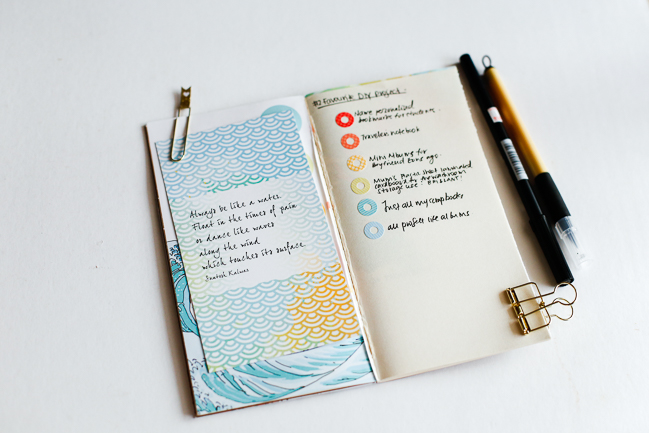 Always be like a water.
Float in the times of pain
or dance like waves
along the wind
which touches its surface.
Santosh Kalwar
#2 Favourite DIY Project.
Name personalized
bookmarks for students.
Travelers notebook
Mini Albums for
boyfriend Long ago.
Mum's
cardboard for
storage use! BRILLIANT!
Just all my scrapbooks
all project life albums